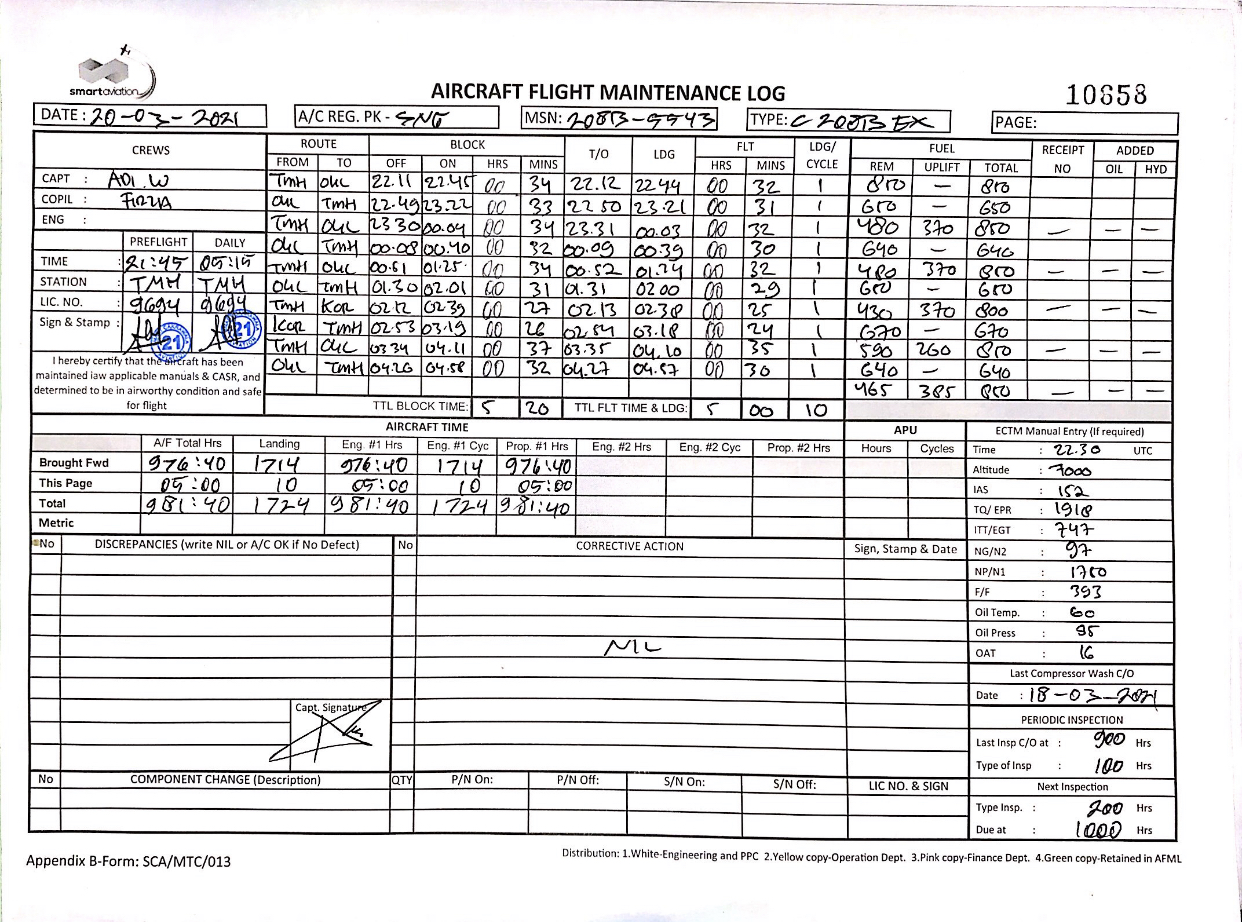 smartaviation
AIRCRAFT FLIGHT MAINTENANCE LOG 10658
DATE : 20-03-2021 A/C REG. PK - SNG MSN: 208B-5543 TYPE: C 208B EX PAGE:
CREWS ROUTE BLOCK T/O LDG FLT LDG/ CYCLE FUEL RECEIPT NO ADDED
FROM TO OFF ON HRS MINS HRS MINS REM UPLIFT TOTAL OIL HYD
CAPT : ADI.W TMH OKL 22.11 22.45 00 34 22.12 22.44 00 32 1 850 - 850
COPIL : FIRZA OKL TMH 22.49 23.22 00 33 22.50 23.21 00 31 1 650 - 650
ENG : TMH OKL 23.30 00.04 00 34 23.31 00.03 00 32 1 480 370 850 - - -
PREFLIGHT DAILY OKL TMH 00.08 00.40 00 32 00.09 00.39 00 30 1 640 - 640
TIME : 21:45 05:15 TMH OKL 00.51 01.25 00 34 00.52 01.24 00 32 1 480 370 850 - - -
STATION : TMH TMH OKL TMH 01.30 02.01 00 31 01.31 02.00 00 29 1 650 - 650
LIC. NO. : 9694 9694 TMH KOR 02.12 02.39 00 27 02.13 02.38 00 25 1 430 370 800 - - -
Sign & Stamp : 21 21 KOR TMH 02.53 03.19 00 26 02.54 03.18 00 24 1 670 - 670
TMH OKL 03.34 04.11 00 37 03.35 04.10 00 35 1 590 260 850 - - -
OKL TMH 04.26 04.58 00 32 04.27 04.57 00 30 1 640 - 640
465 385 850 - - -
I hereby certify that the aircraft has been
maintained iaw applicable manuals & CASR, and
determined to be in airworthy condition and safe
for flight
TTL BLOCK TIME: 5 20 TTL FLT TIME & LDG: 5 00 10
AIRCRAFT TIME APU ECTM Manual Entry (If required)
A/F Total Hrs Landing Eng. #1 Hrs Eng. #1 Cyc Prop. #1 Hrs Eng. #2 Hrs Eng. #2 Cyc Prop. #2 Hrs Hours Cycles
Brought Fwd 976:40 1714 976:40 1714 976:40
This Page 05:00 10 05:00 10 05:00
Total 981:40 1724 981:40 1724 981:40
Metric
Time : 22.30 UTC
Altitude : 7000
IAS : 152
TQ/ EPR : 1918
ITT/EGT : 747
NG/N2 : 97
NP/N1 : 1750
F/F : 393
Oil Temp. : 60
Oil Press : 95
OAT : 16
No DISCREPANCIES (write NIL or A/C OK if No Defect) No CORRECTIVE ACTION Sign, Stamp & Date
NIL
Capt. Signature
Last Compressor Wash C/O
Date : 18-03-2021
PERIODIC INSPECTION
Last Insp C/O at : 900 Hrs
Type of Insp : 100 Hrs
Next Inspection
Type Insp. : 200 Hrs
Due at : 1000 Hrs
No COMPONENT CHANGE (Description) QTY P/N On: P/N Off: S/N On: S/N Off: LIC NO. & SIGN
Appendix B-Form: SCA/MTC/013
Distribution: 1.White-Engineering and PPC 2.Yellow copy-Operation Dept. 3.Pink copy-Finance Dept. 4.Green copy-Retained in AFML